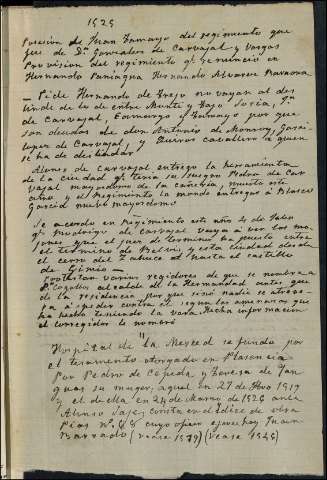 1525
Posesión de Juan Tamayo del regimiento que
fue de Dn. Gonzalo de Carvajal y Vargas
Provisión del regimiento qe. renunció en
Hernando Paniagua Hernando Alvarez Navarra
— Pide Hernando de Trejo no vayan al des
linde de lo de entre Monte y Tajo Soria, Jn.
de Carvajal, Camargo y Tamayo por que
son deudos de don Antonio de Monroy, Garci
lopez de Carvajal, y Zurros caballero a quien
se ha de deslindar
Alonso de Carvajal entrego la herramienta
de la ciudad qe. tenia su suegro Pedro de Car
vajal mayordomo de la cañeria, muerto este
año y el Regimiento la mandó entregar á Blasco
García nuebo mayordomo
Se acordo en Regimiento este año 4 de Julio
qe. Rodrigo de Carvajal vaya a ver los mo
jones que el juez de terminos ha puesto entre
el termino de Belvis y esta ciudad desde
el cerro del hasta el castillo
de
Protestan varios regidores de que se nombre a
Dº. alcalde de la Hermandad antes que
de la residencia por que sino nadie se atreve
ra á pedir contra el segun las amenazas que
ha hecho teniendo la vara Hecha informacion
el corregidor le nombró
Hospital de La Merced se fundo por
el testamento otorgado en Plasencia
Por Pedro de Cepeda y Teresa de Jan
guas su muger, aquel en 27 de 1519
y el de ella en 24 de Marzo de 1526 ante
Alonso consta en el Yndice de obra
Pias nº. 88 cuyo oficio ejerce hoy Juan
Barrado (vease 1579) (Vease 1546)